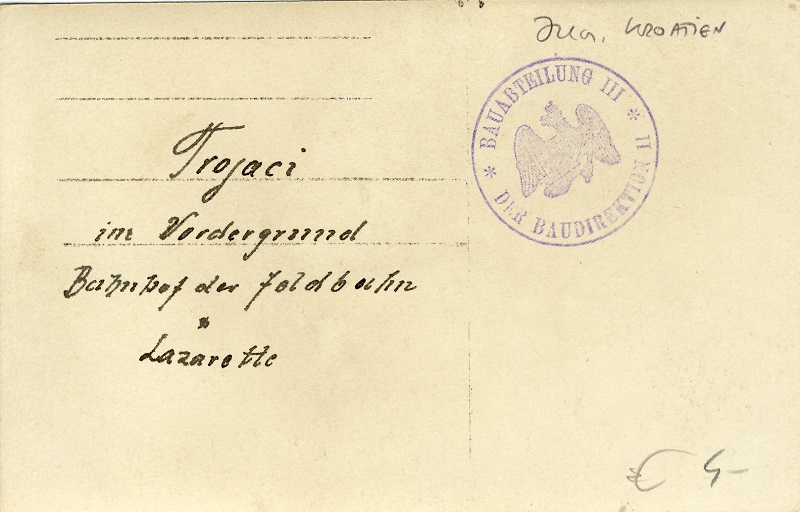 Jug. KROATIEN
* BAUABTEILUNG III *
DER BAUDIREKTION II
Trojaci
im Vordergrund
Bahnhof der Feldbahn
u
Lazarette
€ 4-